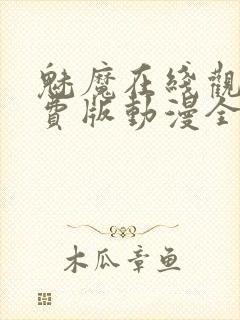 魅魔在綫觀
費版動漫全
木瓜章鱼